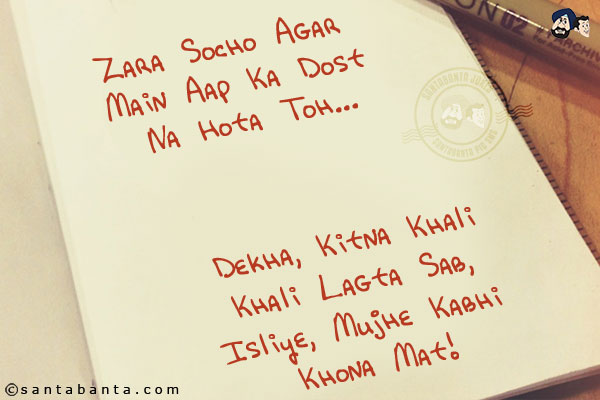 Zara Socho Agar
Main Aap Ka Dost
Na Hota Toh...
Dekha, Kitna Khali
Khali Lagta Sab,
Isliye, Mujhe Kabhi
Khona Mat!
©santabanta.com